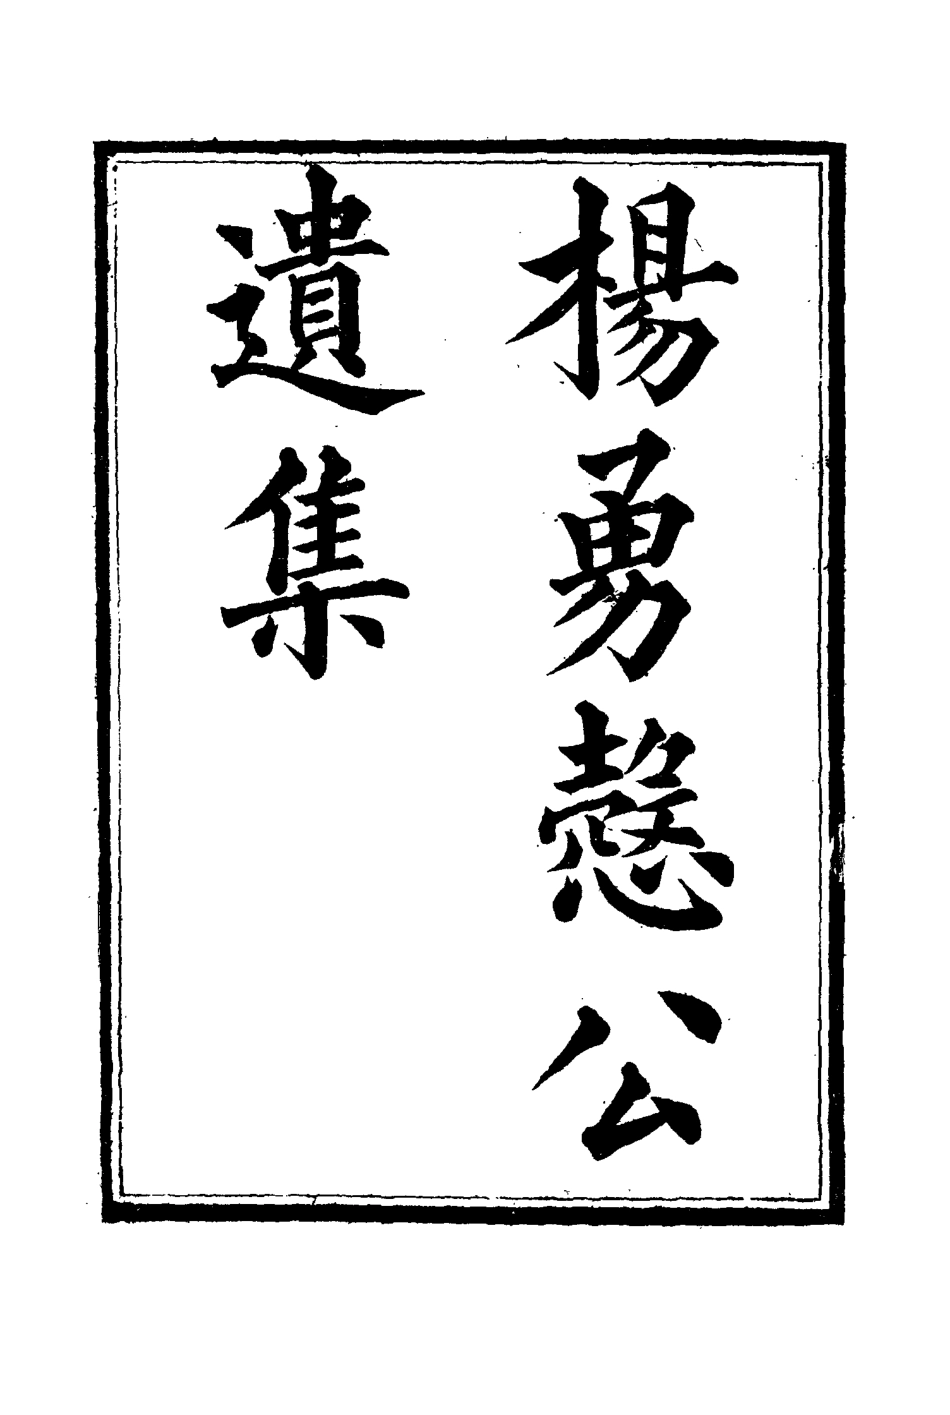 楊勇慤公
遺集